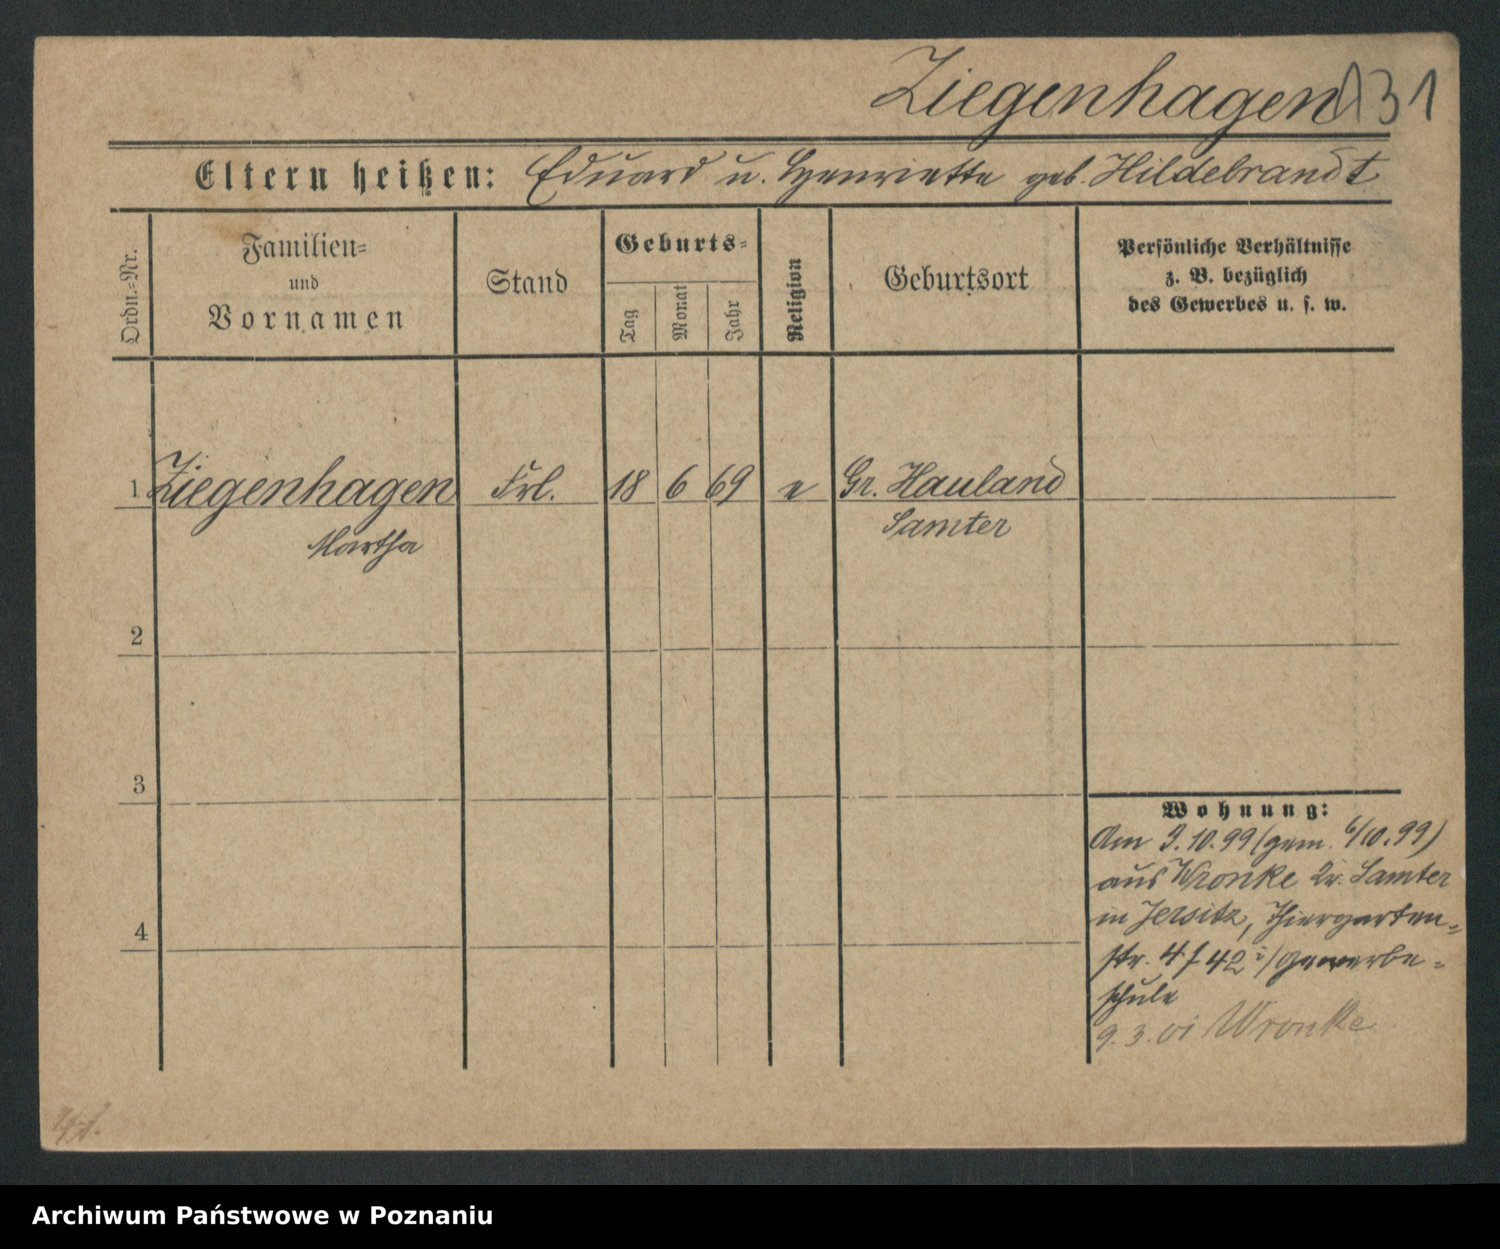 Ziegenhagen 131
Eltern heißen: Eduard u. Henriette geb. Hildebrandt
Ordn.-Nr.
Familien-
und
Vornamen
Stand
Geburts-
Tag
Monat
Jahr
Religion
Geburtsort
Persönliche Verhältnisse
z. B. bezüglich
des Gewerbes u. s. w.
1 Ziegenhagen Frl. 18 6 69 e Gr. Hauland
Martha Samter
2
3
4
Wohnung:
Am 3.10.99 (gem. 6/10.99)
aus Wronke Kr. Samter
in Jersitz, Thiergarten-
str. 4 / Gewerbe-
schule
9.3.01 Wronke
Archiwum Państwowe w Poznaniu